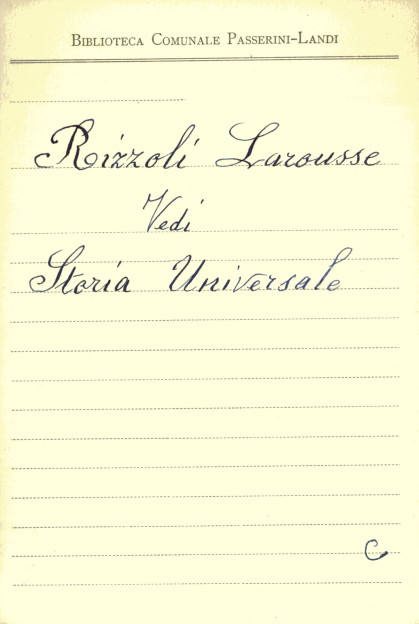 Biblioteca Comunale Passerini-Landi
Rizzoli Larousse
Vedi
Storia Universale
C